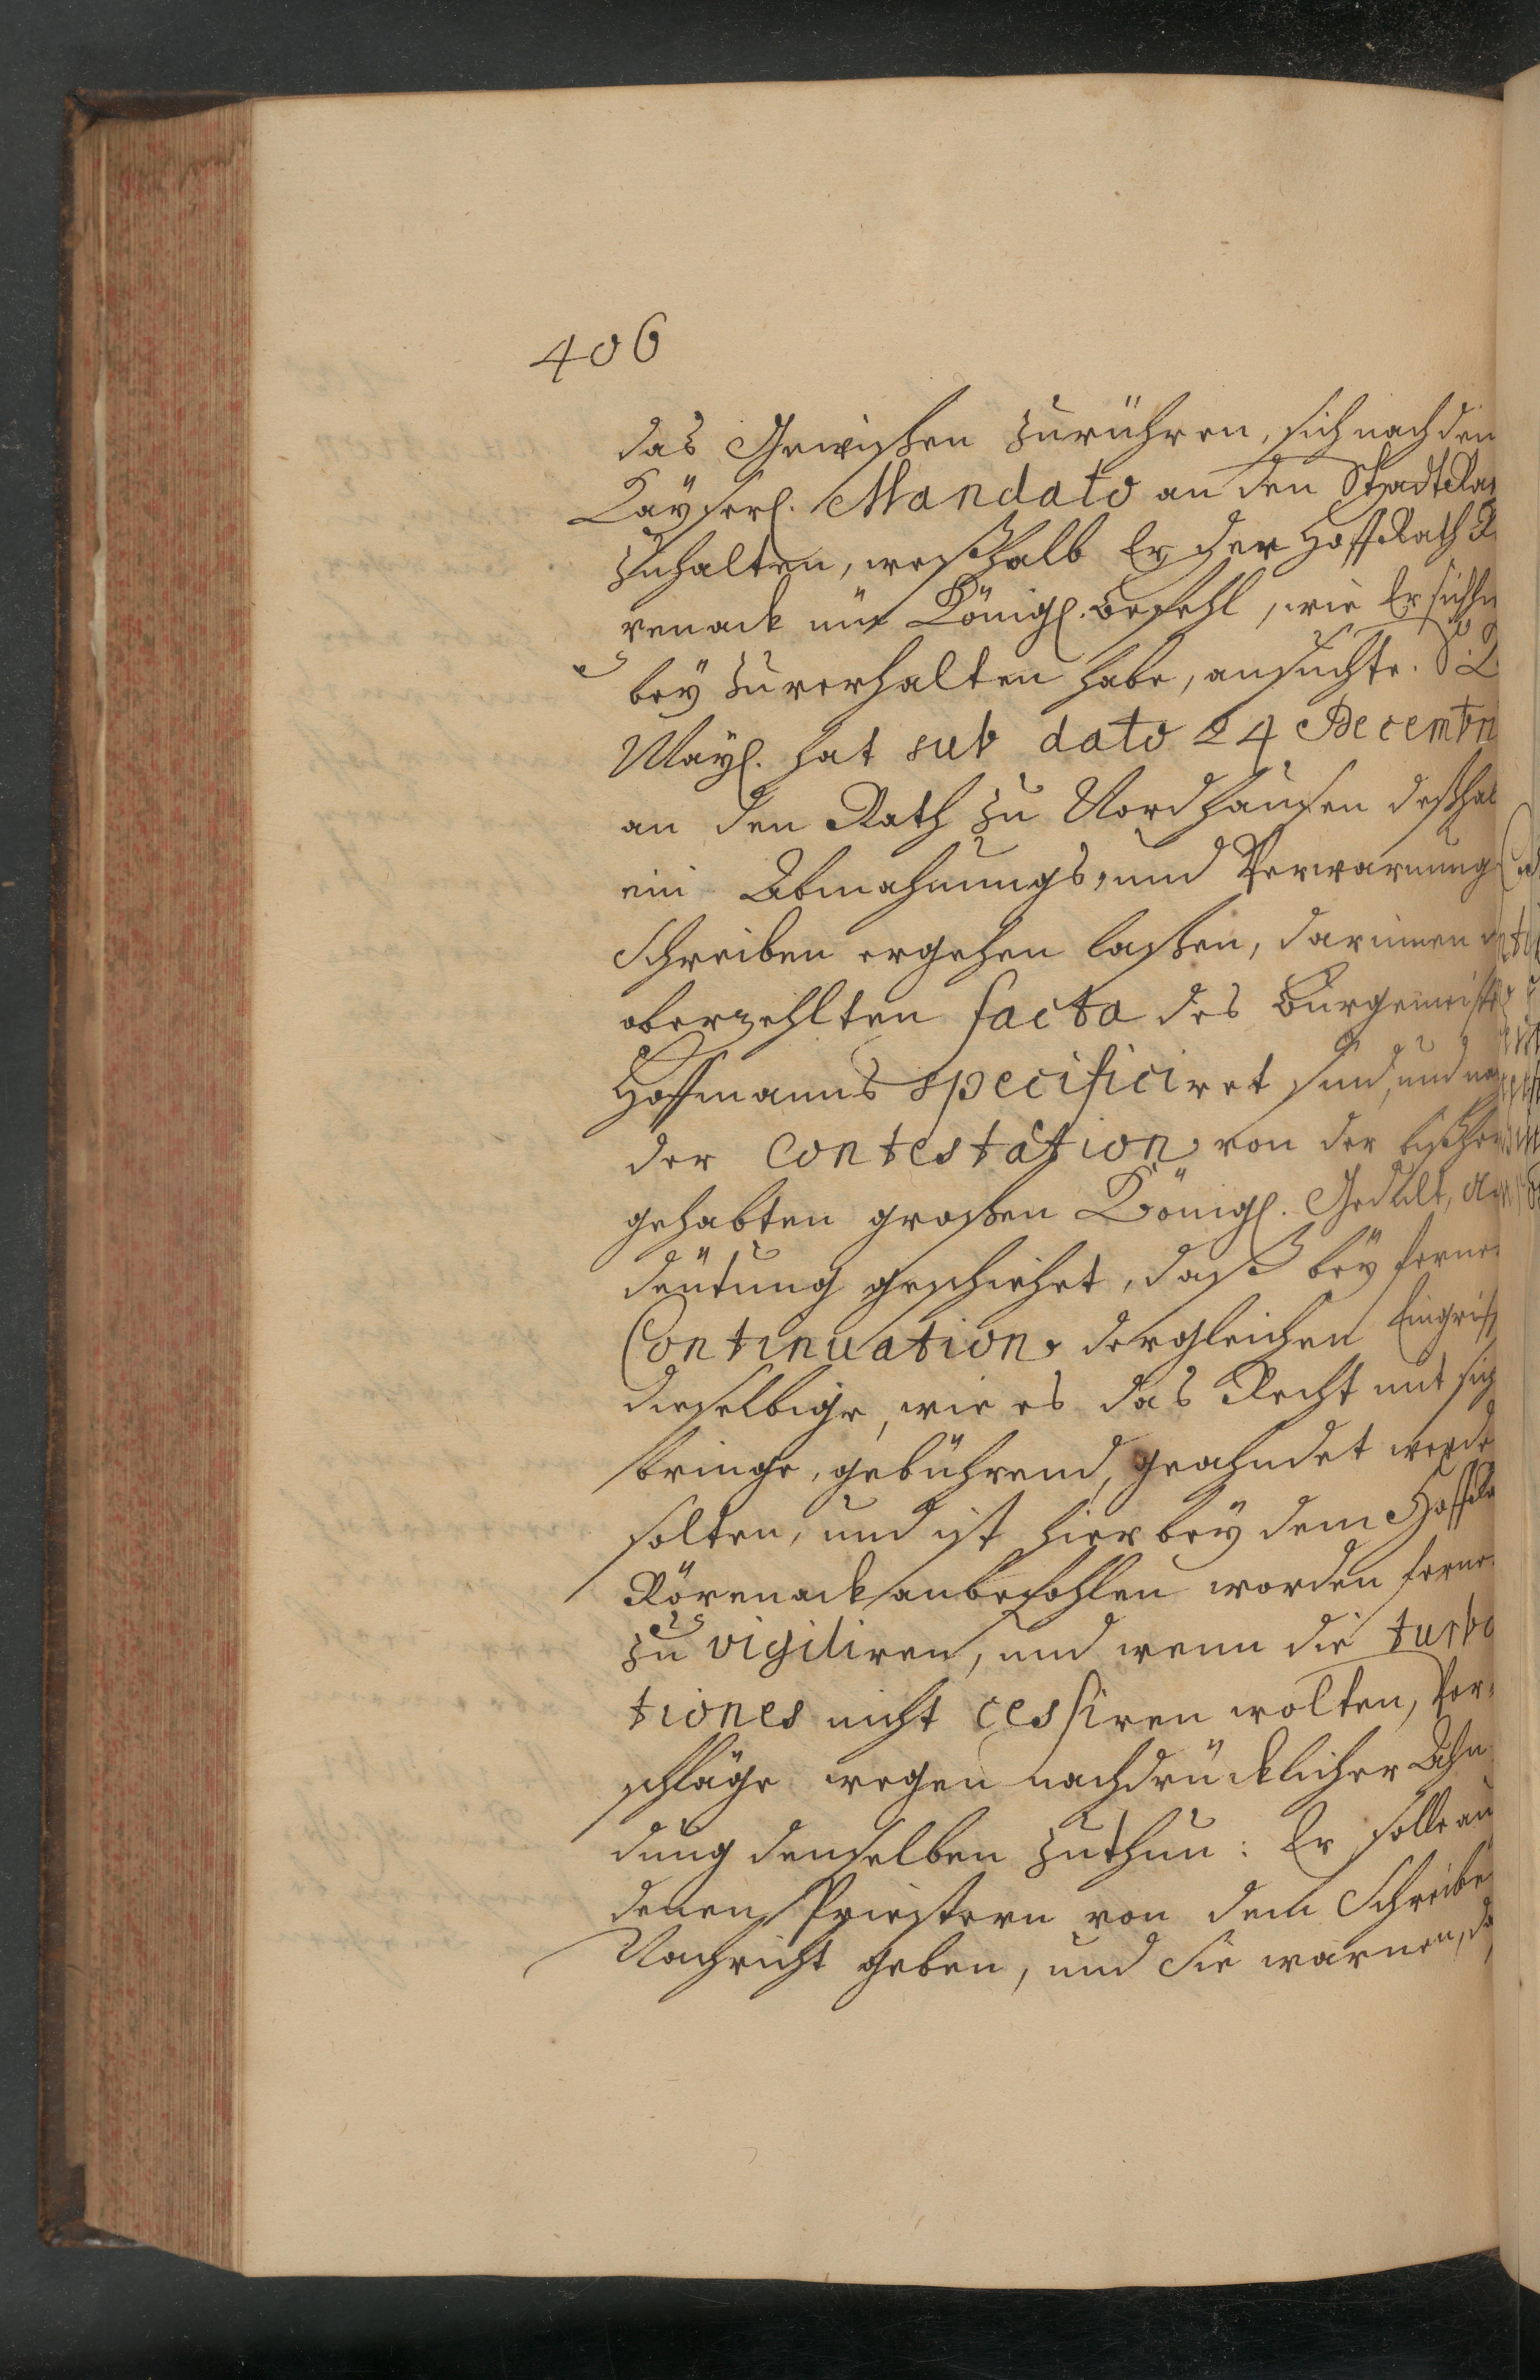 406
das Gewißen zurühren, sich nach den
Kayserl. Mandato an den Stadt Ra
zuhalten, weßhalb Er der Hoff Rath R
renack um Königl. Befehl, wie Er sich hie
bey zuverhalten habe, ansuchte. S. K
Mayl. hat sub dato 24 Decembr
an den Rath zu Nordhausen deßhal
ein Abmahnungs, und Verwarnung
Schreiben ergehen laßen, darinnen
oberzehlten facta des Burgemeiste
Hoffmanns specificiret sind, und na
der Contestation von der bißher
gehabten großen Königl. Gedult, An
deutung geschiehet, daß bey ferne
Continuation dergleichen Eingriff
dieselbige, wie es das Recht mit sich
bringe, gebührend, geahndet werde
solten, und ist hierbey dem Hoff Ra
Rörenack anbefohlen worden ferne
zu vigiliren, und wenn die turba
tiones nicht cessiren wolten, Vor-
schläge wegen nachdrücklicher Ahn
dung denselben zuthun: Er solle au
denen Priestern von dem Schreibe
Nachricht geben, und Sie warnen, da